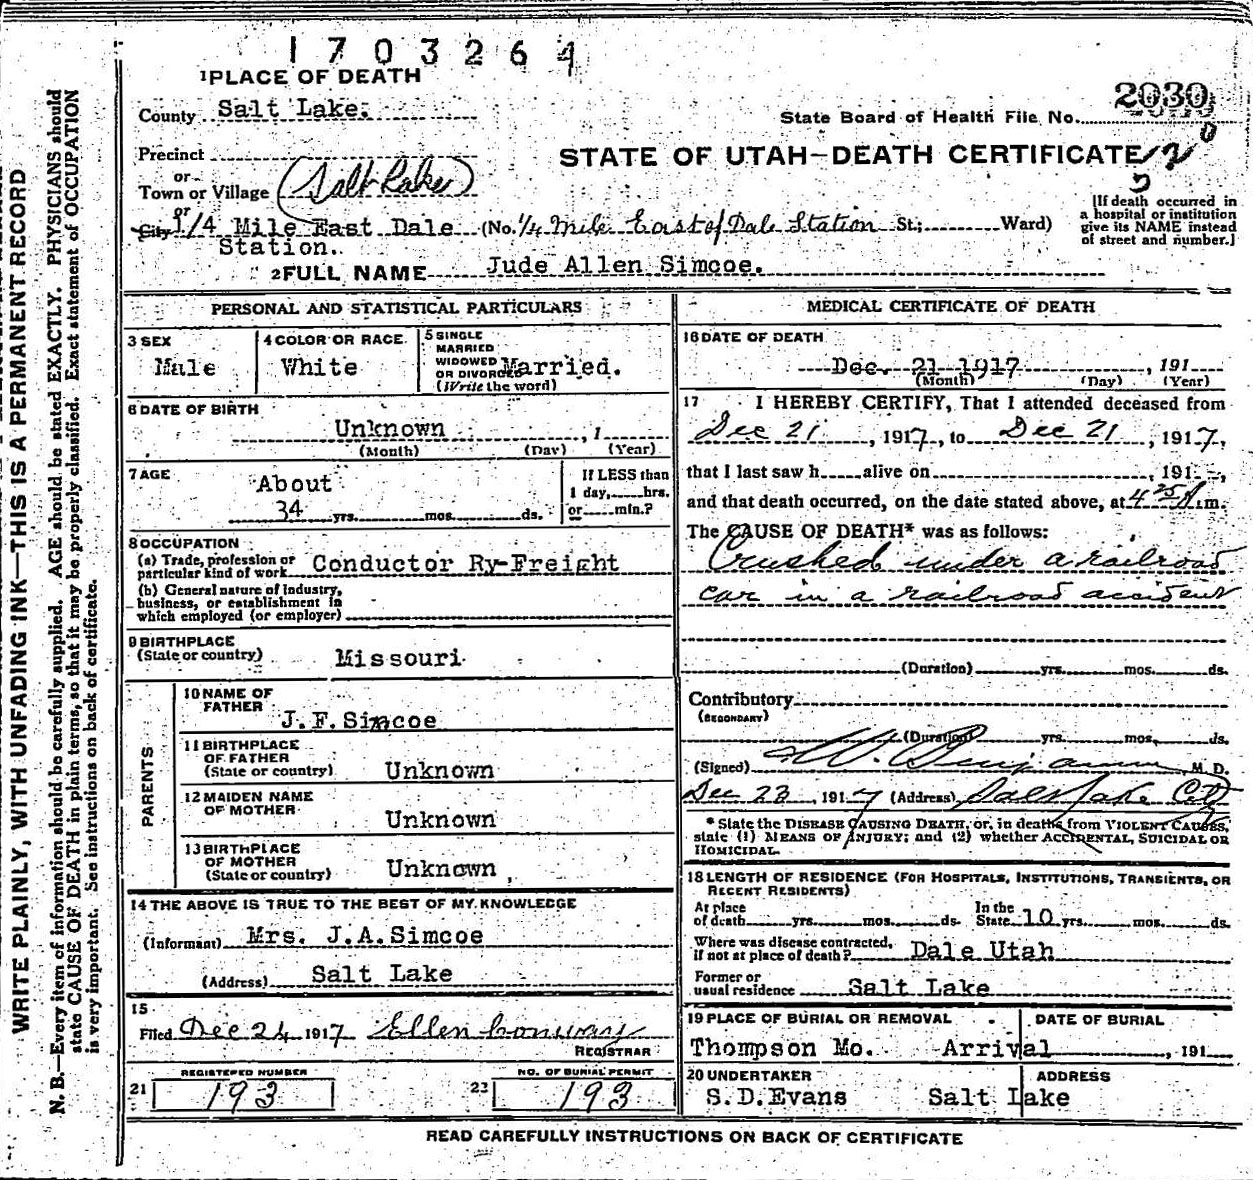 1703264
1 PLACE OF DEATH
County Salt Lake.
2030
State Board of Health File No.
Precinct
STATE OF UTAH—DEATH CERTIFICATE
or
Town or Village (Salt Lake)
or
City 1/4 Mile East Dale (No. 1/4 Mile East of Dale Station St.; Ward)
Station.
[If death occurred in
a hospital or institution
give its NAME instead
of street and number.]
2 FULL NAME Jude Allen Simcoe.
PERSONAL AND STATISTICAL PARTICULARS
3 SEX
Male
4 COLOR OR RACE
White
5 SINGLE
MARRIED
WIDOWED
OR DIVORCED Married.
(Write the word)
6 DATE OF BIRTH
Unknown , 1
(Month) (Day) (Year)
7 AGE
About
34 yrs. mos. ds.
If LESS than
1 day, hrs.
or min.?
8 OCCUPATION
(a) Trade, profession or
particular kind of work Conductor Ry-Freight
(b) General nature of Industry,
business, or establishment in
which employed (or employer)
9 BIRTHPLACE
(State or country) Missouri
PARENTS
10 NAME OF
FATHER J.F.Simcoe
11 BIRTHPLACE
OF FATHER
(State or country) Unknown
12 MAIDEN NAME
OF MOTHER Unknown
13 BIRTHPLACE
OF MOTHER
(State or country) Unknown
14 THE ABOVE IS TRUE TO THE BEST OF MY KNOWLEDGE
(Informant) Mrs. J.A.Simcoe
(Address) Salt Lake
15
Filed Dec 24 1917 Ellen Conway
REGISTRAR
REGISTERED NUMBER
21 193
NO. OF BURIAL PERMIT
23 193
MEDICAL CERTIFICATE OF DEATH
16 DATE OF DEATH
Dec. 21 1917 , 191
(Month) (Day) (Year)
17 I HEREBY CERTIFY, That I attended deceased from
Dec 21 , 1917, to Dec 21 , 1917,
that I last saw h alive on , 191 ,
and that death occurred, on the date stated above, at 4 25 A.m.
The CAUSE OF DEATH* was as follows:
Crushed under a railroad
car in a railroad accident
(Duration) yrs. mos. ds.
Contributory
(SECONDARY)
(Duration) yrs. mos. ds.
(Signed) W. Benjamin M. D.
Dec 23 , 1917 (Address) Salt Lake City
* State the DISEASE CAUSING DEATH, or, in deaths from VIOLENT CAUSES,
state (1) MEANS OF INJURY; and (2) whether ACCIDENTAL, SUICIDAL OR
HOMICIDAL.
18 LENGTH OF RESIDENCE (FOR HOSPITALS, INSTITUTIONS, TRANSIENTS, OR
RECENT RESIDENTS)
At place
of death yrs. mos. ds.
In the
State 10 yrs. mos. ds.
Where was disease contracted,
if not at place of death? Dale Utah
Former or
usual residence Salt Lake
19 PLACE OF BURIAL OR REMOVAL
Thompson Mo.
DATE OF BURIAL
Arrival , 191
20 UNDERTAKER
S.D.Evans
ADDRESS
Salt Lake
READ CAREFULLY INSTRUCTIONS ON BACK OF CERTIFICATE
WRITE PLAINLY, WITH UNFADING INK—THIS IS A PERMANENT RECORD
N. B.—Every item of information should be carefully supplied. AGE should be stated EXACTLY. PHYSICIANS should
state CAUSE OF DEATH in plain terms, so that it may be properly classified. Exact statement of OCCUPATION
is very important. See instructions on back of certificate.